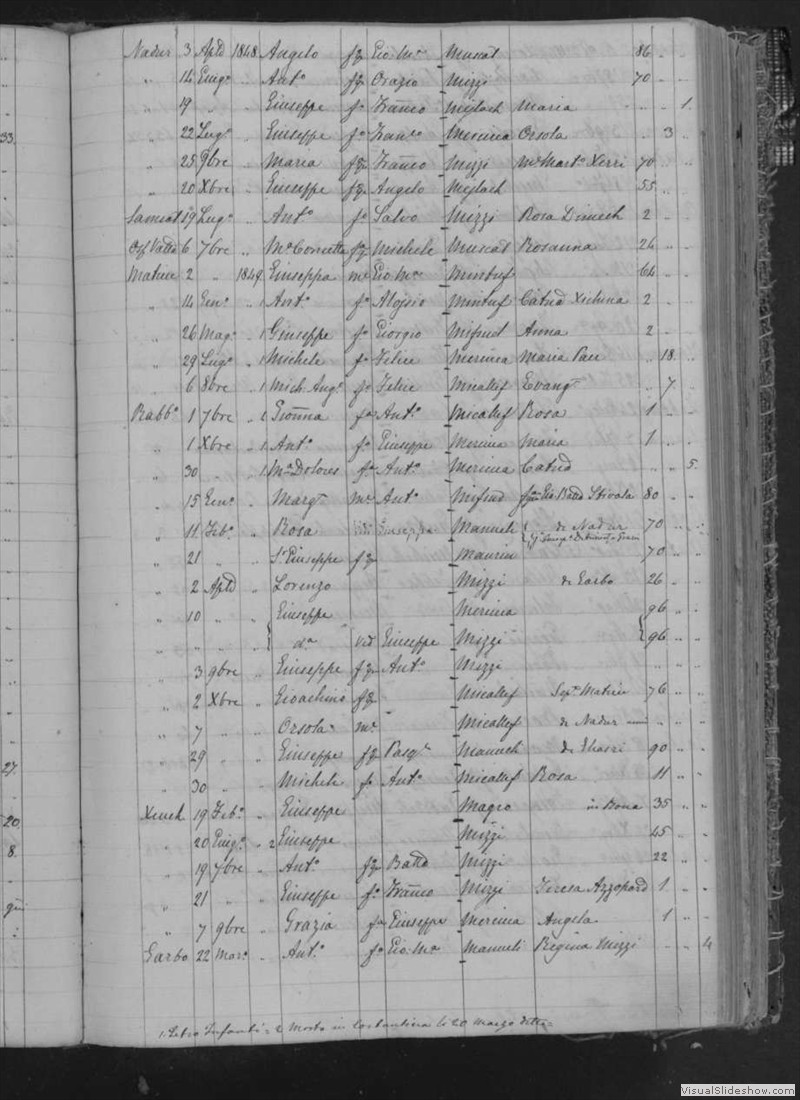 33.
27.
20.
8.
Nadur 3 Aplē 1848 Angelo fq Gio: Mᵃ Muscat 86 " "
" 14 Giugº " Antº fq Orazio Mizzi 70 " "
" 19 " " Giuseppe fº Franco Mejlach Maria " " 1.
" 22 Lugº " Giuseppe fº Franco Mercieca Orsola " 3 "
" 25 9bre " Maria fq Franco Mizzi Mᵉ Martº Xerri 70 "
" 20 Xbre " Giuseppe fq Angelo Mejlach 55 "
Sannat 19 Lugº " Antº fº Salvo Mizzi Rosa Dimech 2 "
6 7bre " Mᵃ Concetta fq Michele Muscat Rosanna 26 "
Matrice 2 " 1849 Giuseppa mᵉ Gio: Mᵃ Mintuf 64
" 14 Genº " 1 Antº fº Alojsio Mintuf Catnd Xichina 2
" 26 Magº " 1 Giuseppe fº Giorgio Mifsud Anna 2
" 29 Lugº " 1 Michele fº Felice Mercieca Maria Pace " 18
" 6 8bre " 1 Mich: Angº fº Felice Micallef Evangᵗᵃ " 7
Rabbº 1 7bre " 1 Gionna fª Antº Micallef Rosa 1
" 1 Xbre " 1 Antº fº Giuseppe Mercieca Maria 1
" 30 " " 1 Mᵃ Dolores fª Antº Mercieca Catnd " " 5.
" 15 Genº " Margᵗᵃ mᵉ Antº Mifsud Battᵃ Stivala 80 "
" 11 Febº " Rosa Giuseppe Manueli de Nadur 70 "
" 21 " " Sʳ Giuseppe fq Maurin 70 "
" 2 Aplē " Lorenzo Mizzi de Garbo 26 "
" 10 " " Giuseppe Mercieca 96 "
" " " " dᵃ vid Giuseppe Mizzi 96 "
" 3 9bre " Giuseppe fq Antº Mizzi " "
" 2 Xbre " Gioachino fq Micallef Sepº Matrice 76 "
" 7 " " Orsola mᵉ Micallef de Nadur " "
" 29 " " Giuseppe fq Pasqᵉ Manueli de Ghasri 90 "
" 30 " " Michele fº Antº Micallef Rosa 11 "
Xeuch 19 Febº " Giuseppe Magro in Bona 35 "
" 20 Giugº " 2 Giuseppe Mizzi 45 "
" 19 7bre " Antº fq Battᵃ Mizzi 22 "
" 21 " " Giuseppe fº Franco Mizzi Teresa Azzopard 1 "
" 7 9bre " Grazia fª Giuseppe Mercieca Angela 1 "
Garbo 22 Marº " Antº fº Gio: Mᵃ Manueli Regina Mizzi " " 4
1. Infanti = 2 Morto in Costantina li 20 Marzo detto =
VisualSlideshow.com